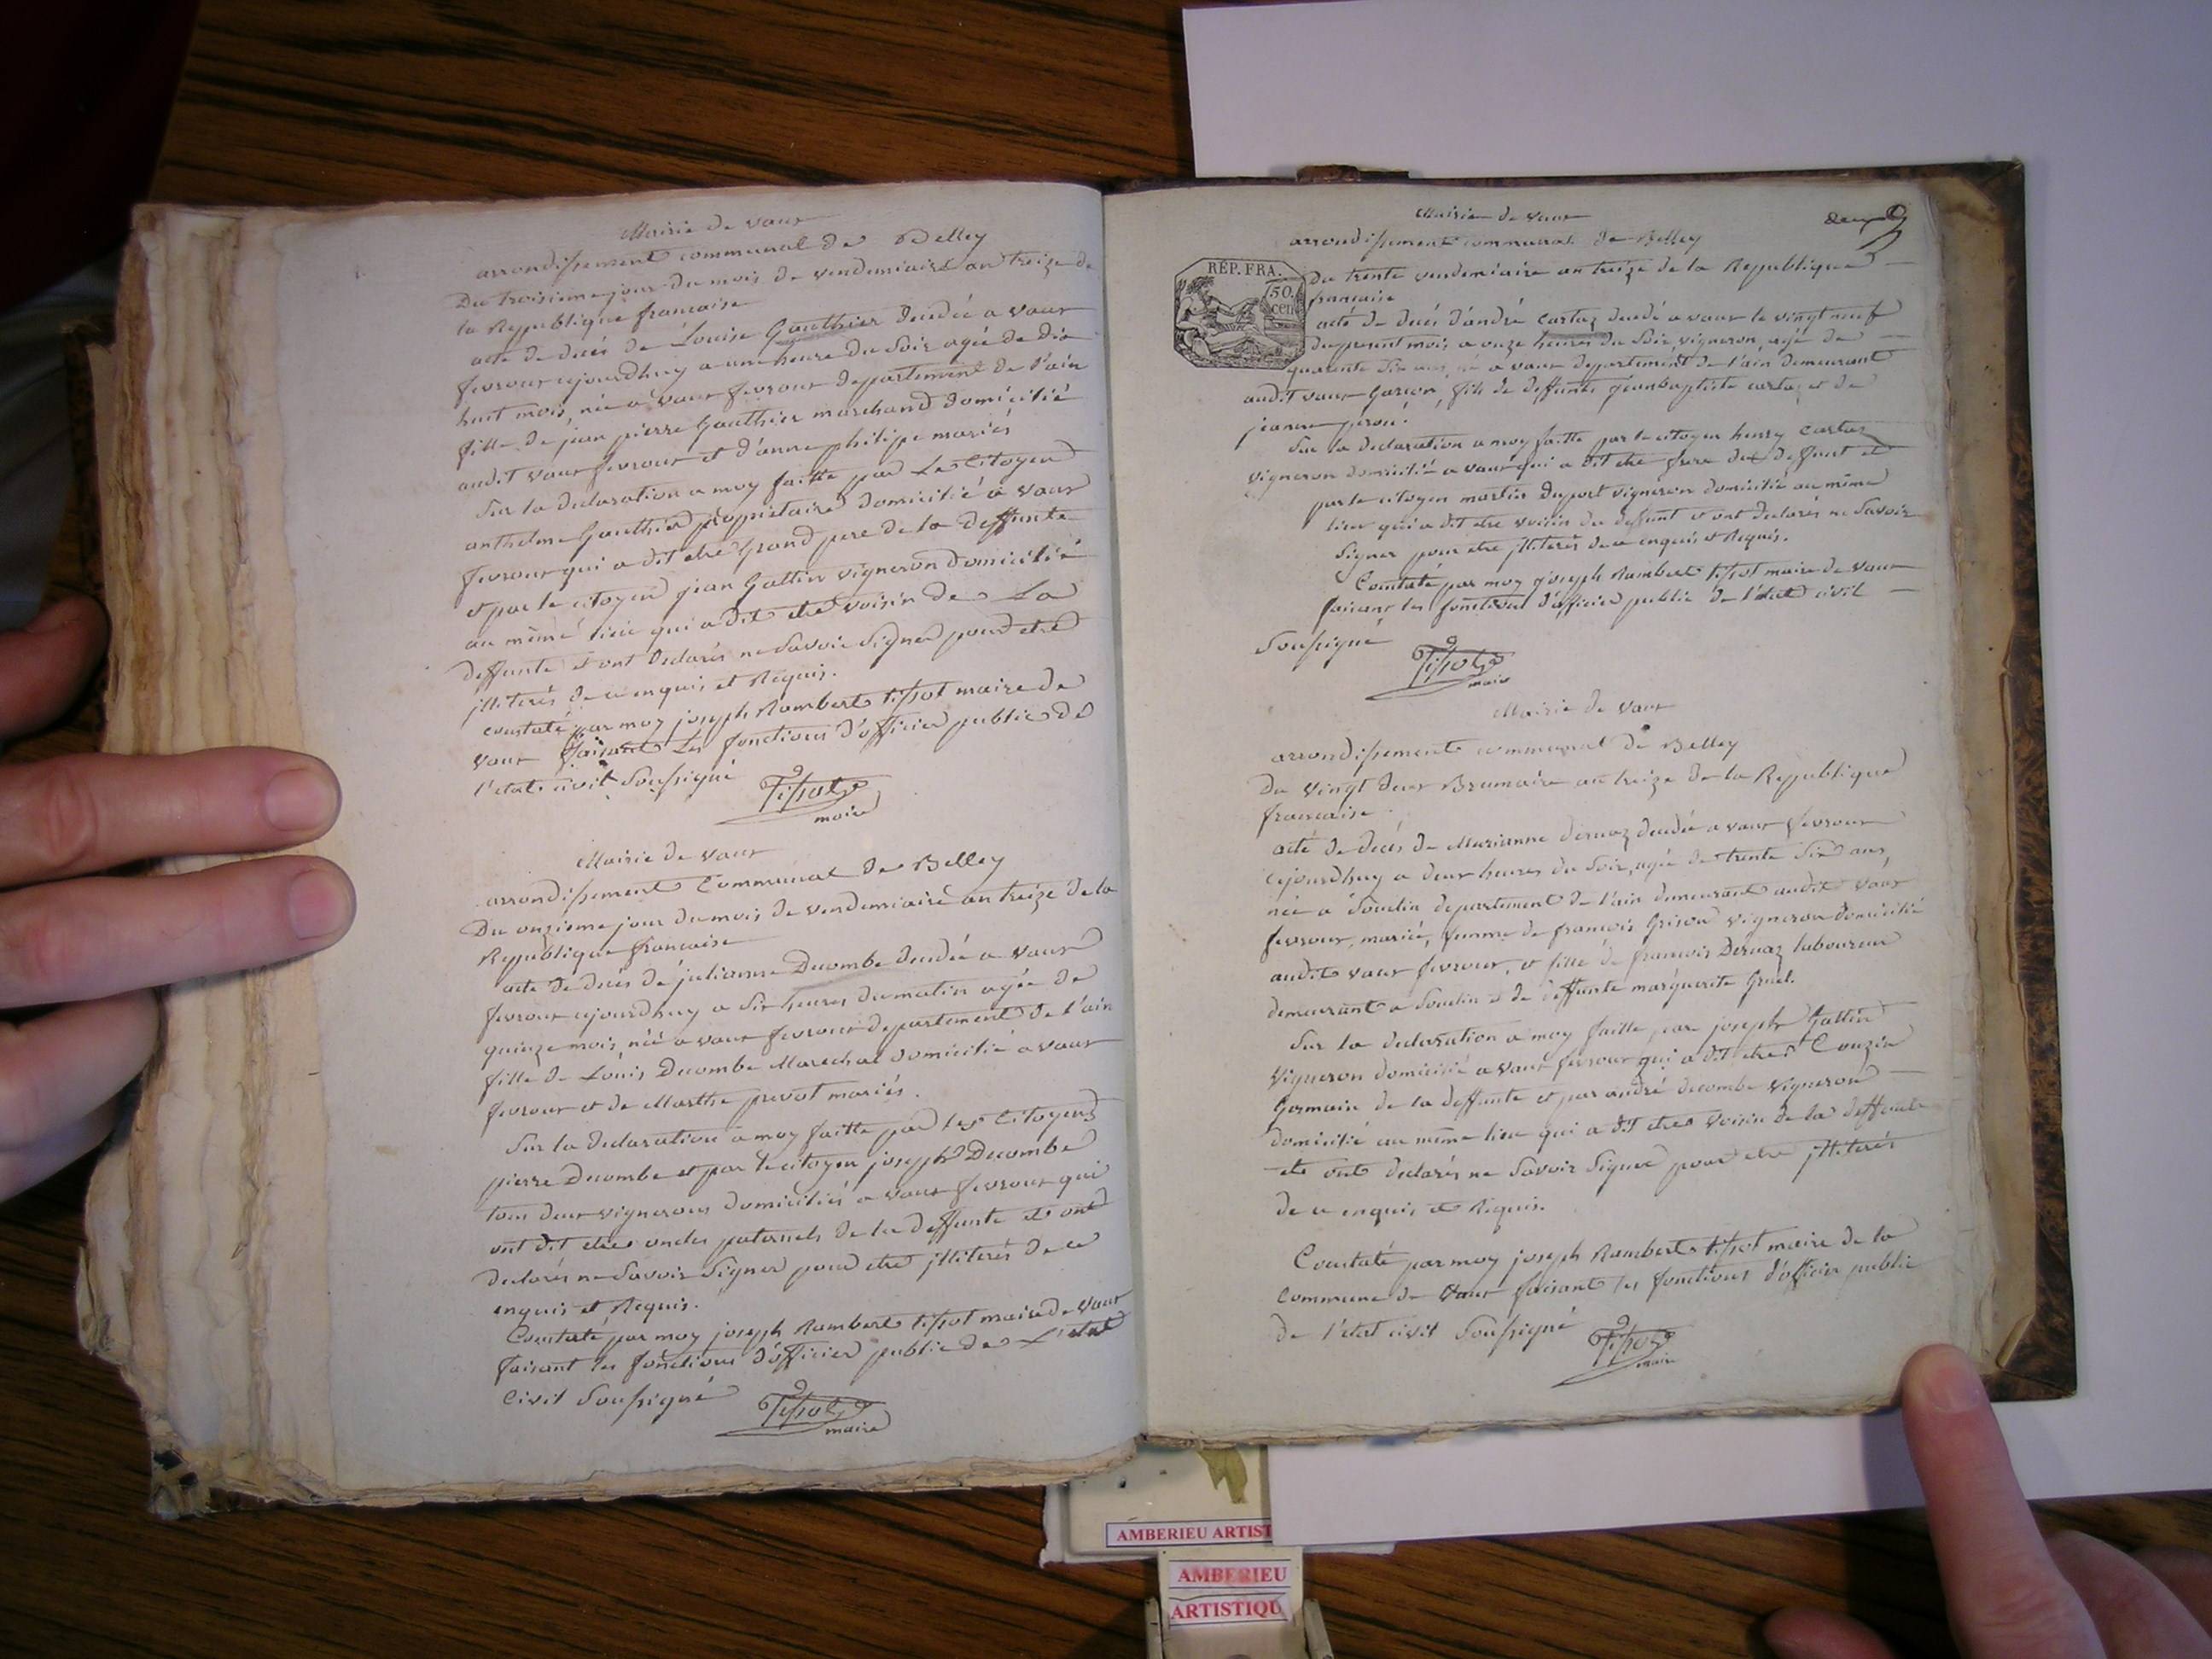 Mairie de vaux
arrondissement communal de Belley
Du troisieme jour du mois de vendemiaire an treize de
la Republique francaise
acte de decés de Louise Gauthier decedée a vaux
fevroux ajourdhuy a une heure du Soir agée de dix
huit mois, née a vaux fevroux departement de l'ain
fille de jean pierre Gauthier marchand domicilié
audit vaux fevroux et d'anne philipe mariés
Sur la declaration a moy faitte par Le Citoyen
anthelme Gauthier propriétaire domicilié a vaux
fevroux qui a dit etre Grand pere de la deffunte
et par le citoyen jean Gattin vigneron domicilié
au même lieu qui a dit etre voisin de La
deffunte et ont declarés ne Savoir Signer pour etre
jlliterés de ce enquis et Requis.
constaté par moy joseph Rambert tissot maire de
vaux faisant Les fonctions d'officier public de
l'etat civil Soussigné
Tissot
maire
Mairie de vaux
arrondissement Communal de Belley
Du onzieme jour du mois de vendemiaire an treize de la
Republique francaise
acte de decés de julianne Decombe decedée a vaux
fevroux ajourdhuy a Six heures du matin agée de
quinze mois, née a vaux fevroux departement de l'ain
fille de Louis Decombe Marechal domicilié a vaux
fevroux et de Marthe prevot mariés.
Sur la declaration a moy faitte par les Citoyens
pierre Decombe et par le citoyen joseph Decombe
tous deux vignerons domiciliés a vaux fevroux qui
ont dit etre oncles paternels de la deffunte et ont
declarés ne Savoir Signer pour etre jlliterés de ce
enquis et Requis.
Constaté par moy joseph Rambert tissot maire de vaux
faisant les fonctions d'officier public de L'etat
Civil Soussigné
Tissot
maire
Mairie de vaux
deux
arrondissement communal de Belley
RÉP. FRA.
50.
cen
Du trente vendemiaire an treize de la Republique
francaise
acte de decés d'andré Cartaz decedé a vaux le vingt neuf
du present mois a onze heures du Soir, vigneron, agé de
quarante Six ans, né a vaux departement de l'ain demeurant
audit vaux Garcon, fils de deffunts jeanbaptiste cartaz et de
jeanne
Sur la declaration a moy faitte par le citoyen henry Cartaz
vigneron domicilié a vaux qui a dit etre frere du deffunt et
par le citoyen martin Duport vigneron domicilié au même
lieu qui a dit etre voisin du deffunt et ont declarés ne Savoir
Signer pour etre jlliterés de ce enquis et Requis.
Constaté par moy joseph Rambert tissot maire de vaux
faisant les fonctions d'officier public de l'etat civil
Soussigné
Tissot
maire
Mairie de vaux
arrondissement communal de Belley
Du vingt deux Brumaire an treize de la Republique
francaise.
acte de decés de Marianne dernaz decedée a vaux fevroux
ajourdhuy a deux heures du Soir, agée de trente Six ans,
née a Souclin departement de l'ain demeurant audit vaux
fevroux, mariée, femme de francois Grison vigneron domicilié
audit vaux fevroux, et fille de francois Dernaz laboureur
demeurant a Souclin et de deffunte marguerite Gruel.
Sur la declaration a moy faitte par joseph Gattin
vigneron domicilié a vaux fevroux qui a dit etre Couzin
Germain de la deffunte et par andré decombe vigneron
domicilié au même lieu qui a dit etre voisin de la deffunte
et ont declarés ne Savoir Signer pour etre jlliterés
de ce enquis et Requis.
Constaté par moy joseph Rambert tissot maire de la
commune de vaux faisant les fonctions d'officier public
de l'etat civil Soussigné
Tissot
maire
AMBERIEU ARTIST
AMBERIEU
ARTISTIQU